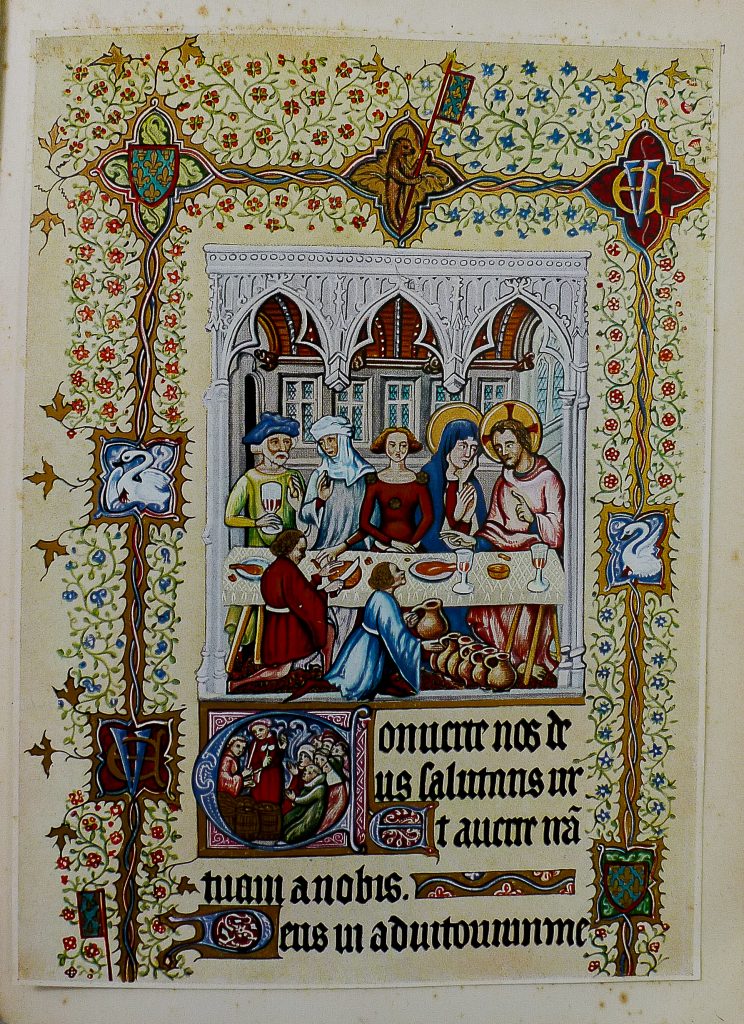 Conuerte nos de
us salutaris nr
Et auerte irā
tuam a nobis.
Deus in adiutorium me